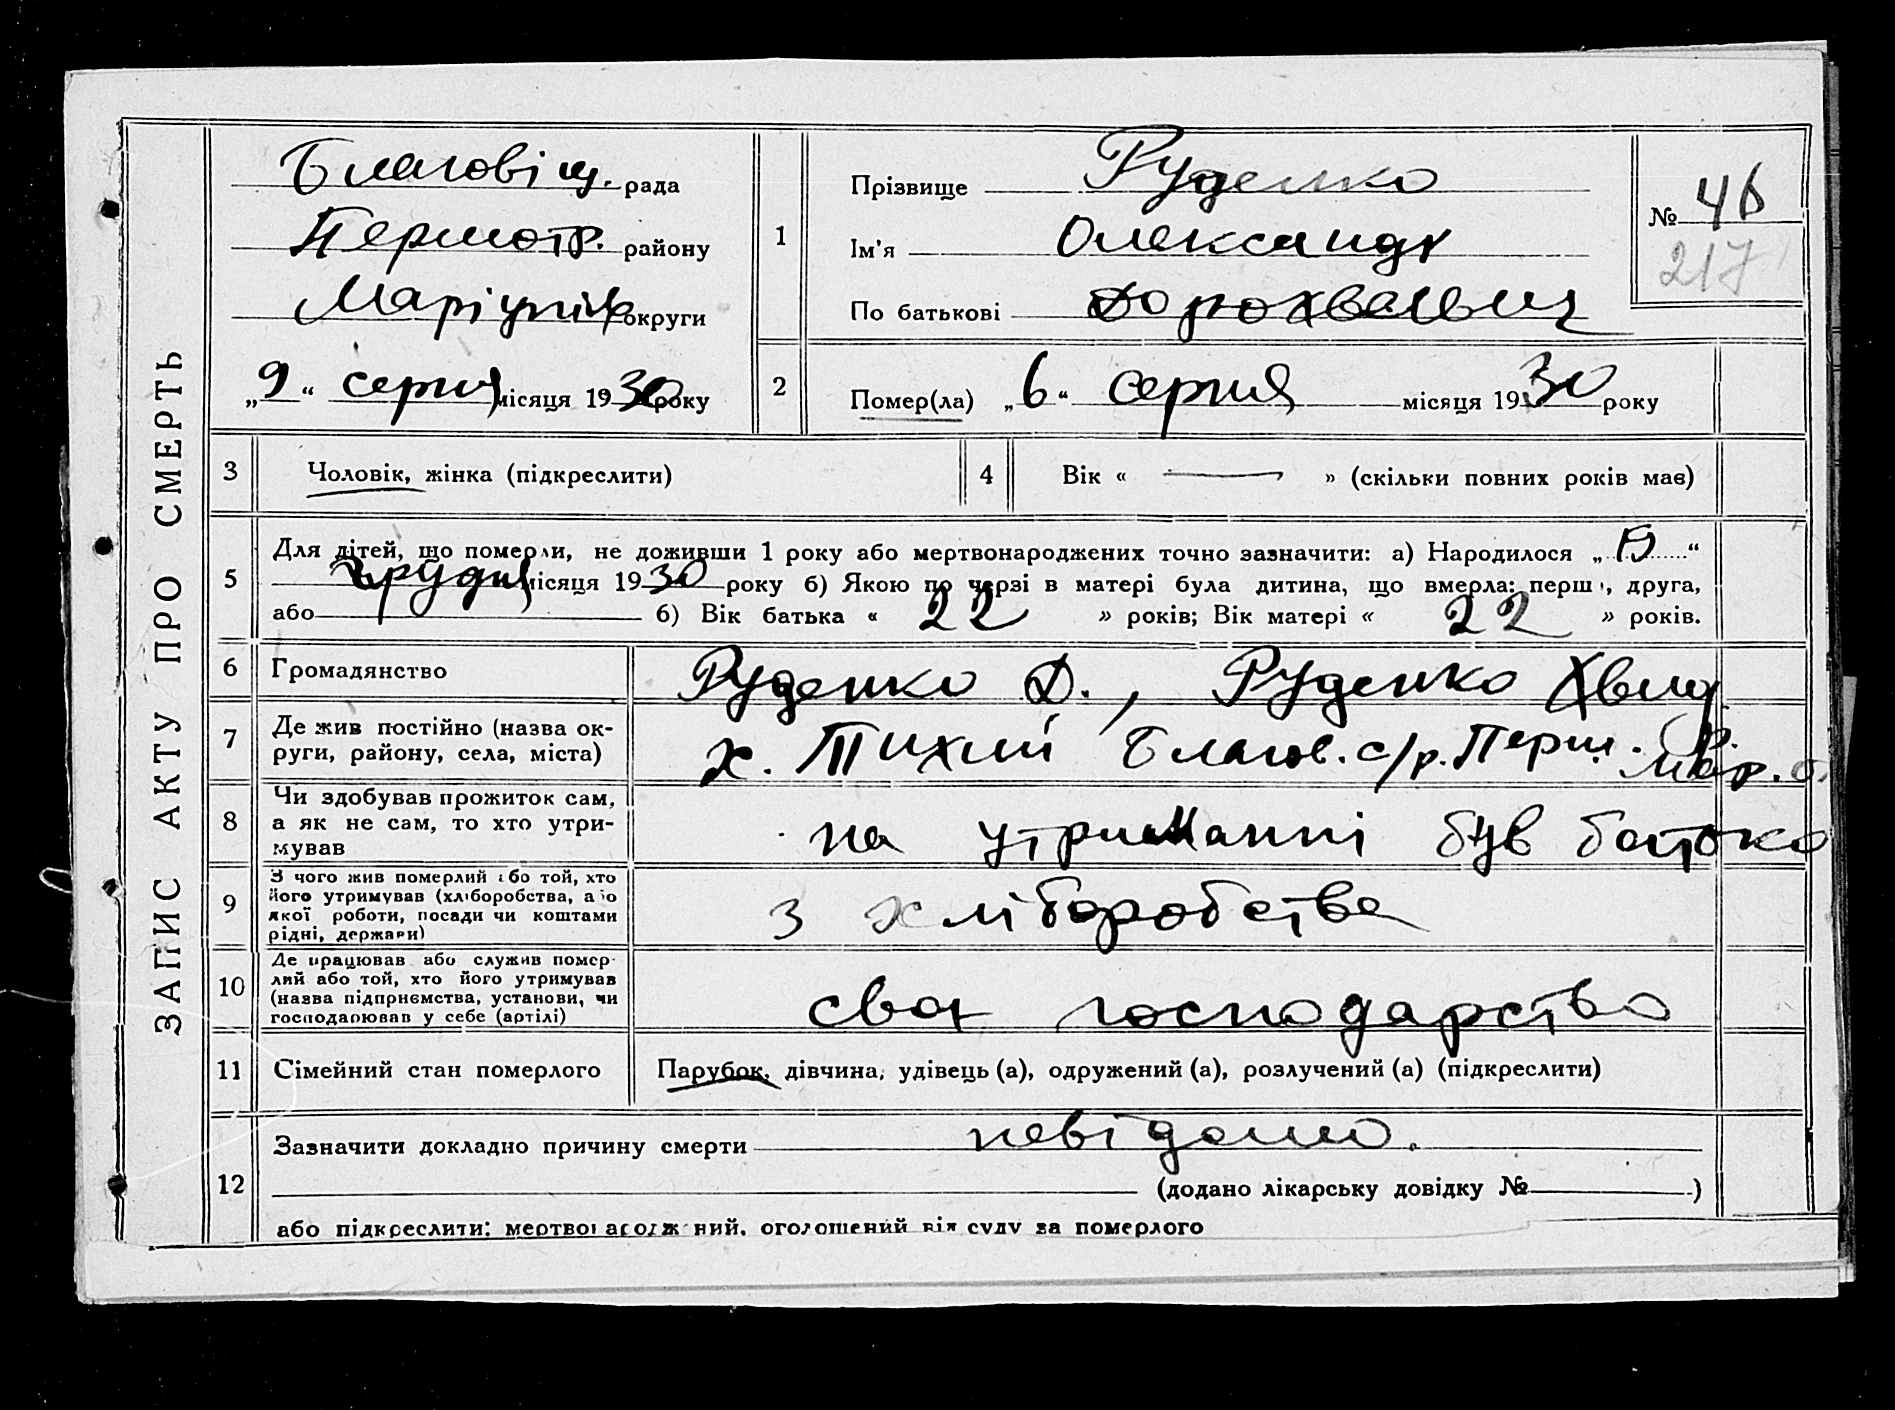 ЗАПИС АКТУ ПРО СМЕРТЬ
Благовіщ. рада
Першотр. району
Маріупіл округи
„9“ серпня місяця 1930 року
1
Прізвище Руденко
Ім'я Олександр
По батькові
№ 46
217
2
Помер(ла) „6“ серпня місяця 1930 року
3
Чоловік, жінка (підкреслити)
4
Вік « — » (скільки повних років має)
5
Для дітей, що померли, не доживши 1 року або мертвонароджених точно зазначити: а) Народилося „ “
грудня місяця 1930 року б) Якою по черзі в матері була дитина, що вмерла: перша, друга,
або — б) Вік батька « 22 » років; Вік матері « 22 » років.
6
Громадянство
Руденко Д., Руденко
7
Де жив постійно (назва ок-
руги, району, села, міста)
х. Тихий Благов. с/р. Перш. р. Мар. о.
8
Чи здобував прожиток сам,
а як не сам, то хто утри-
мував
на утриманні був батька
9
З чого жив померлий або той, хто
його утримував (хліборобства, або
якої роботи, посади чи коштами
рідні, держави)
з хліборобства
10
Де працював або служив помер-
лий або той, хто його утримував
(назва підприємства, установи, чи
господарював у себе (артілі)
своє господарство
11
Сімейний стан померлого
Парубок, дівчина, удівець (а), одружений (а), розлучений (а) (підкреслити)
12
Зазначити докладно причину смерти невідомо.
(додано лікарську довідку № )
або підкреслити: мертвонароджений, оголошений від суду за померлого